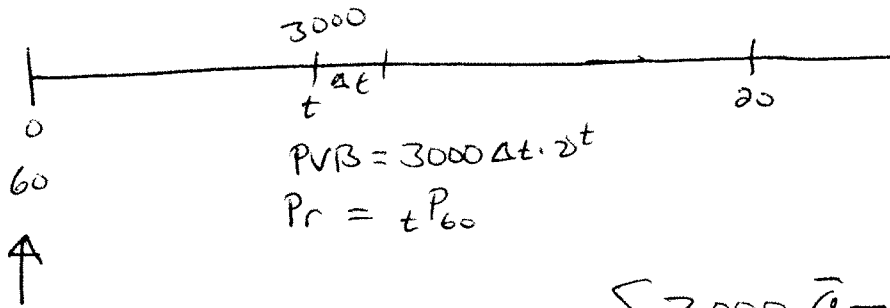 3000
t Δt
0 20
60
PVB = 3000 Δt · v^t
Pr = ₜP₆₀
{ 3000 ā